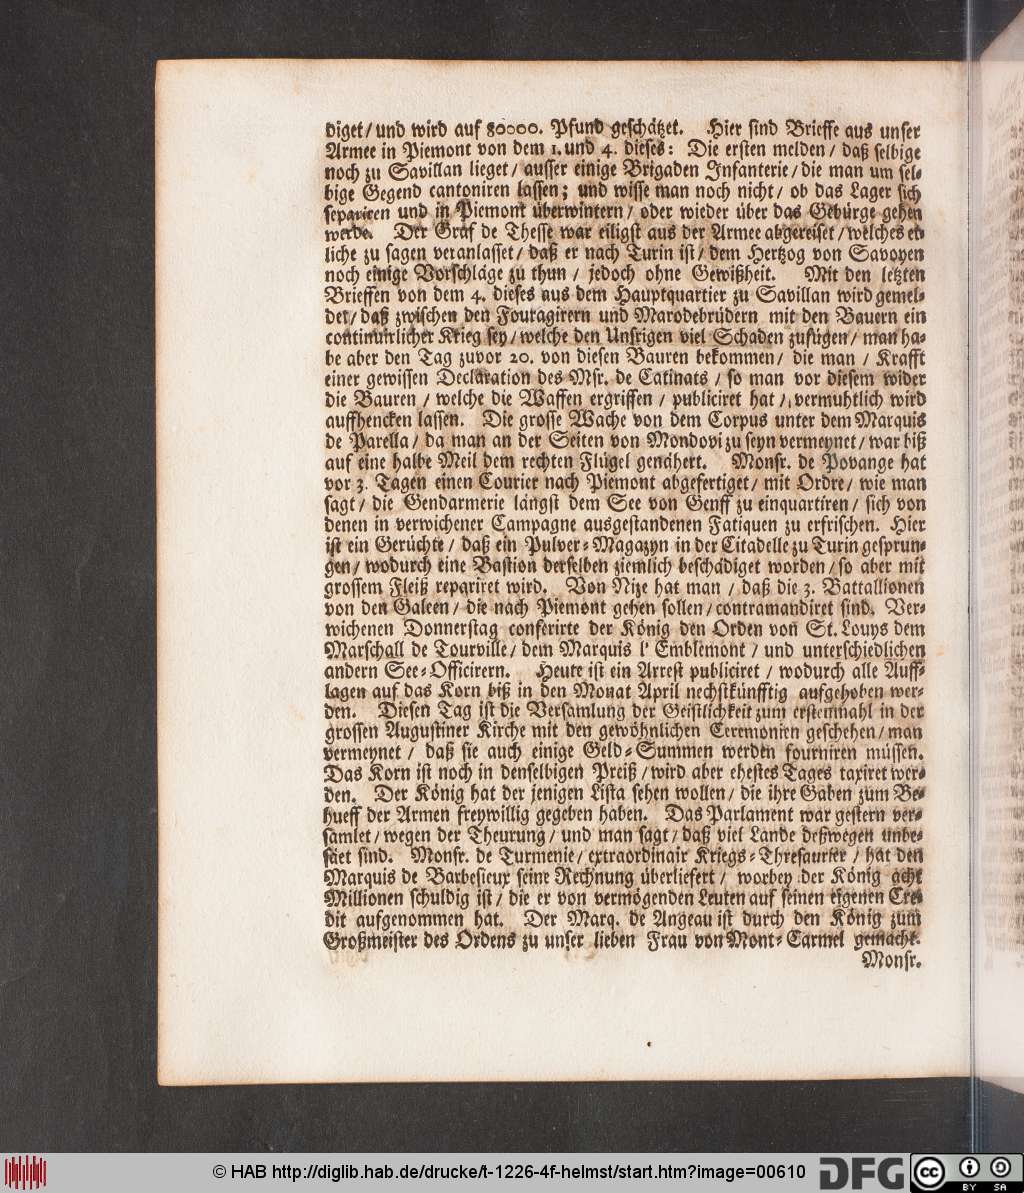 diget / und wird auf 80000. Pfund geschätzet. Hier sind Brieffe aus unser
Armee in Piemont von dem 1. und 4. dieses: Die ersten melden / daß selbige
noch zu Savillan lieget / ausser einige Brigaden Infanterie / die man um sel-
bige Gegend cantoniren lassen; und wisse man noch nicht / ob das Lager sich
separiren und in Piemont überwintern / oder wieder über das Gebürge gehen
werde. Der Graf de Thesse war eiligst aus der Armee abgereiset / welches et-
liche zu sagen veranlasset / daß er nach Turin ist / dem Hertzog von Savoyen
noch einige Vorschläge zu thun / jedoch ohne Gewißheit. Mit den letzten
Brieffen von dem 4. dieses aus dem Hauptquartier zu Savillan wird gemel-
det / daß zwischen den Fouragirern und Marodebrüdern mit den Bauern ein
continuirlicher Krieg sey / welche den Unsrigen viel Schaden zufügen / man ha-
be aber den Tag zuvor 20. von diesen Bauren bekommen / die man / Krafft
einer gewissen Declaration des Msr. de Catinats / so man vor diesem wider
die Bauren / welche die Waffen ergriffen / publiciret hat / vermuhtlich wird
auffhencken lassen. Die grosse Wache von dem Corpus unter dem Marquis
de Parella / da man an der Seiten von Mondovi zu seyn vermeynet / war biß
auf eine halbe Meil dem rechten Flügel genähert. Monsr. de Povange hat
vor 3. Tagen einen Courier nach Piemont abgefertiget / mit Ordre / wie man
sagt / die Gendarmerie längst dem See von Genff zu einquartiren / sich von
denen in verwichener Campagne ausgestandenen Fatiquen zu erfrischen. Hier
ist ein Gerüchte / daß ein Pulver-Magazyn in der Citadelle zu Turin gesprun-
gen / wodurch eine Bastion derselben ziemlich beschädiget worden / so aber mit
grossem Fleiß repariret wird. Von Nize hat man / daß die 3. Battallionen
von den Galeen / die nach Piemont gehen sollen / contramandiret sind. Ver-
wichenen Donnerstag conferirte der König den Orden von St. Louys dem
Marschall de Tourville / dem Marquis l' Emblemont / und unterschiedlichen
andern See-Officirern. Heute ist ein Arrest publiciret / wodurch alle Auff-
lagen auf das Korn biß in den Monat April nechstkünfftig aufgehoben wer-
den. Diesen Tag ist die Versamlung der Geistlichkeit zum erstenmahl in der
grossen Augustiner Kirche mit den gewöhnlichen Ceremonien geschehen / man
vermeynet / daß sie auch einige Geld-Summen werden fourniren müssen.
Das Korn ist noch in denselbigen Preiß / wird aber ehestes Tages taxiret wer-
den. Der König hat der jenigen Lista sehen wollen / die ihre Gaben zum Be-
hueff der Armen freywillig gegeben haben. Das Parlament war gestern ver-
samlet / wegen der Theurung / und man sagt / daß viel Lande deßwegen unbe-
säet sind. Monsr. de Turmenie / extraordinair Kriegs-Thresaurier / hat den
Marquis de Barbesieux seine Rechnung überliefert / worbey der König acht
Millionen schuldig ist / die er von vermögenden Leuten auf seinen eigenen Cre-
dit aufgenommen hat. Der Marq. de Angeau ist durch den König zum
Großmeister des Ordens zu unser lieben Frau von Mont-Carmel gemacht.
Monsr.
© HAB http://diglib.hab.de/drucke/t-1226-4f-helmst/start.htm?image=00610
DFG
cc
BY SA